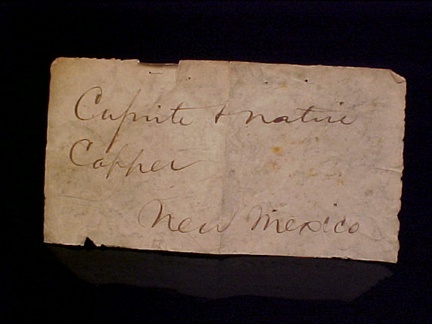 Cuprite & native
Copper
New Mexico